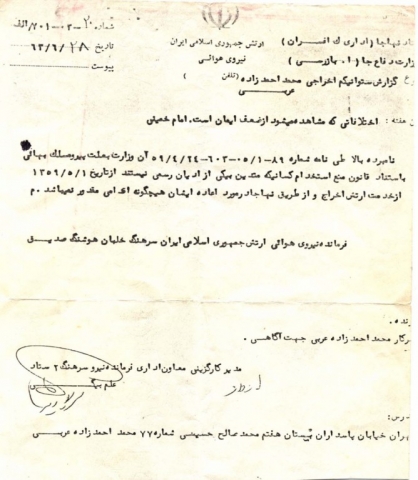 شماره ۲۰-۰۳-۷۰۱/الف
ارتش جمهوری اسلامی ایران
تاریخ ۶۳/۶/۲۸
نیروی هوائی
پیوست
گزارش ستوانیکم اخراجی محمد احمدزاده عربی (تلفن)
هفته : اختلافاتی که مشاهده میشود از ضعف ایمان است. امام خمینی
نامبرده بالا طی نامه شماره ۸۹-۰۵/۱-۶۰۳-۵۹/۴/۲۴ آن وزارت بعلت پیرو مسلک بهائی
باستناد قانون منع استخدام کسانیکه متدین بیکی از ادیان رسمی نیستند از تاریخ ۱۳۵۹/۵/۱
از خدمت ارتش اخراج و از طریق نهاجا در مورد اعاده ایشان هیچگونه اقدامی مقدور نمیباشد م
فرمانده نیروی هوائی ارتش جمهوری اسلامی ایران سرهنگ خلبان هوشنگ صدیق
محمد احمدزاده عربی جهت آگاهی .
مدیر کارگزینی معاون اداری فرمانده نیرو سرهنگ ۲ ستاد
خیابان پاسداران نیستان هفتم محمد صالح حسینی شماره ۷۷ محمد احمدزاده عربی